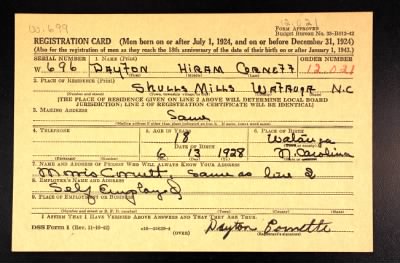 W. 699
12,021
Form Approved
Budget Bureau No. 33-R012-42
REGISTRATION CARD (Men born on or after July 1, 1924, and on or before December 31, 1924)
(Also for the registration of men as they reach the 18th anniversary of the date of their birth on or after January 1, 1943.)
SERIAL NUMBER 1. NAME (Print) ORDER NUMBER
W 696 DAYTON HIRAM CORNETT 12,021
(First) (Middle) (Last)
2. PLACE OF RESIDENCE (Print)
SHULLS MILLS WATAUGA N.C
[THE PLACE OF RESIDENCE GIVEN ON LINE 2 ABOVE WILL DETERMINE LOCAL BOARD
JURISDICTION; LINE 2 OF REGISTRATION CERTIFICATE WILL BE IDENTICAL]
3. MAILING ADDRESS
Same
[Mailing address if other than place indicated on line 2. If same, insert word same]
4. TELEPHONE 5. AGE IN YEARS 6. PLACE OF BIRTH
18 Watauga
DATE OF BIRTH
6 13 1928 N. Carolina
(Mo.) (Day) (Yr.)
7. NAME AND ADDRESS OF PERSON WHO WILL ALWAYS KNOW YOUR ADDRESS
Morris Cornett, Same as line 2
8. EMPLOYER'S NAME AND ADDRESS
Self Employed
9. PLACE OF EMPLOYMENT OR BUSINESS
(Number and street or R. F. D. number) (Town) (County) (State)
I AFFIRM THAT I HAVE VERIFIED ABOVE ANSWERS AND THAT THEY ARE TRUE.
DSS Form 1 (Rev. 11-16-42) (OVER) Dayton Cornette
(Registrant's signature)